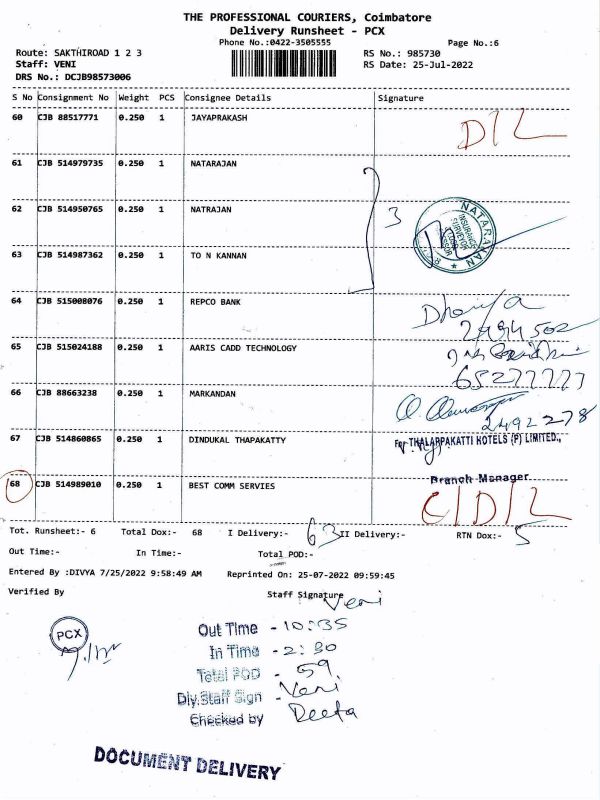 THE PROFESSIONAL COURIERS, Coimbatore
Delivery Runsheet - PCX
Phone No.:0422-3505555
Page No.:6
Route: SAKTHIROAD 1 2 3
RS No.: 985730
Staff: VENI
RS Date: 25-Jul-2022
DRS No.: DCJB98573006
S No Consignment No Weight PCS Consignee Details Signature
60 CJB 88517771 0.250 1 JAYAPRAKASH D/L
61 CJB 514979735 0.250 1 NATARAJAN
62 CJB 514950765 0.250 1 NATRAJAN 3
NATARAJAN
INSURANCE
SURVEYOR
63 CJB 514987362 0.250 1 TO N KANNAN
64 CJB 515008076 0.250 1 REPCO BANK
65 CJB 515024188 0.250 1 AARIS CADD TECHNOLOGY
66 CJB 88663238 0.250 1 MARKANDAN
2492278
67 CJB 514860865 0.250 1 DINDUKAL THAPAKATTY
For THALAPPAKATTI HOTELS (P) LIMITED.,
Branch Manager
68 CJB 514989010 0.250 1 BEST COMM SERVIES C/D/L
Tot. Runsheet:- 6 Total Dox:- 68 I Delivery:- 63 II Delivery:- RTN Dox:- 5
Out Time:- In Time:- Total POD:-
Entered By :DIVYA 7/25/2022 9:58:49 AM Reprinted On: 25-07-2022 09:59:45
Verified By Staff Signature Veni
PCX
Out Time - 10:35
In Time - 2:30
Total POD - 59
Dly.Staff Sign - Veni
Checked by Reeta
DOCUMENT DELIVERY